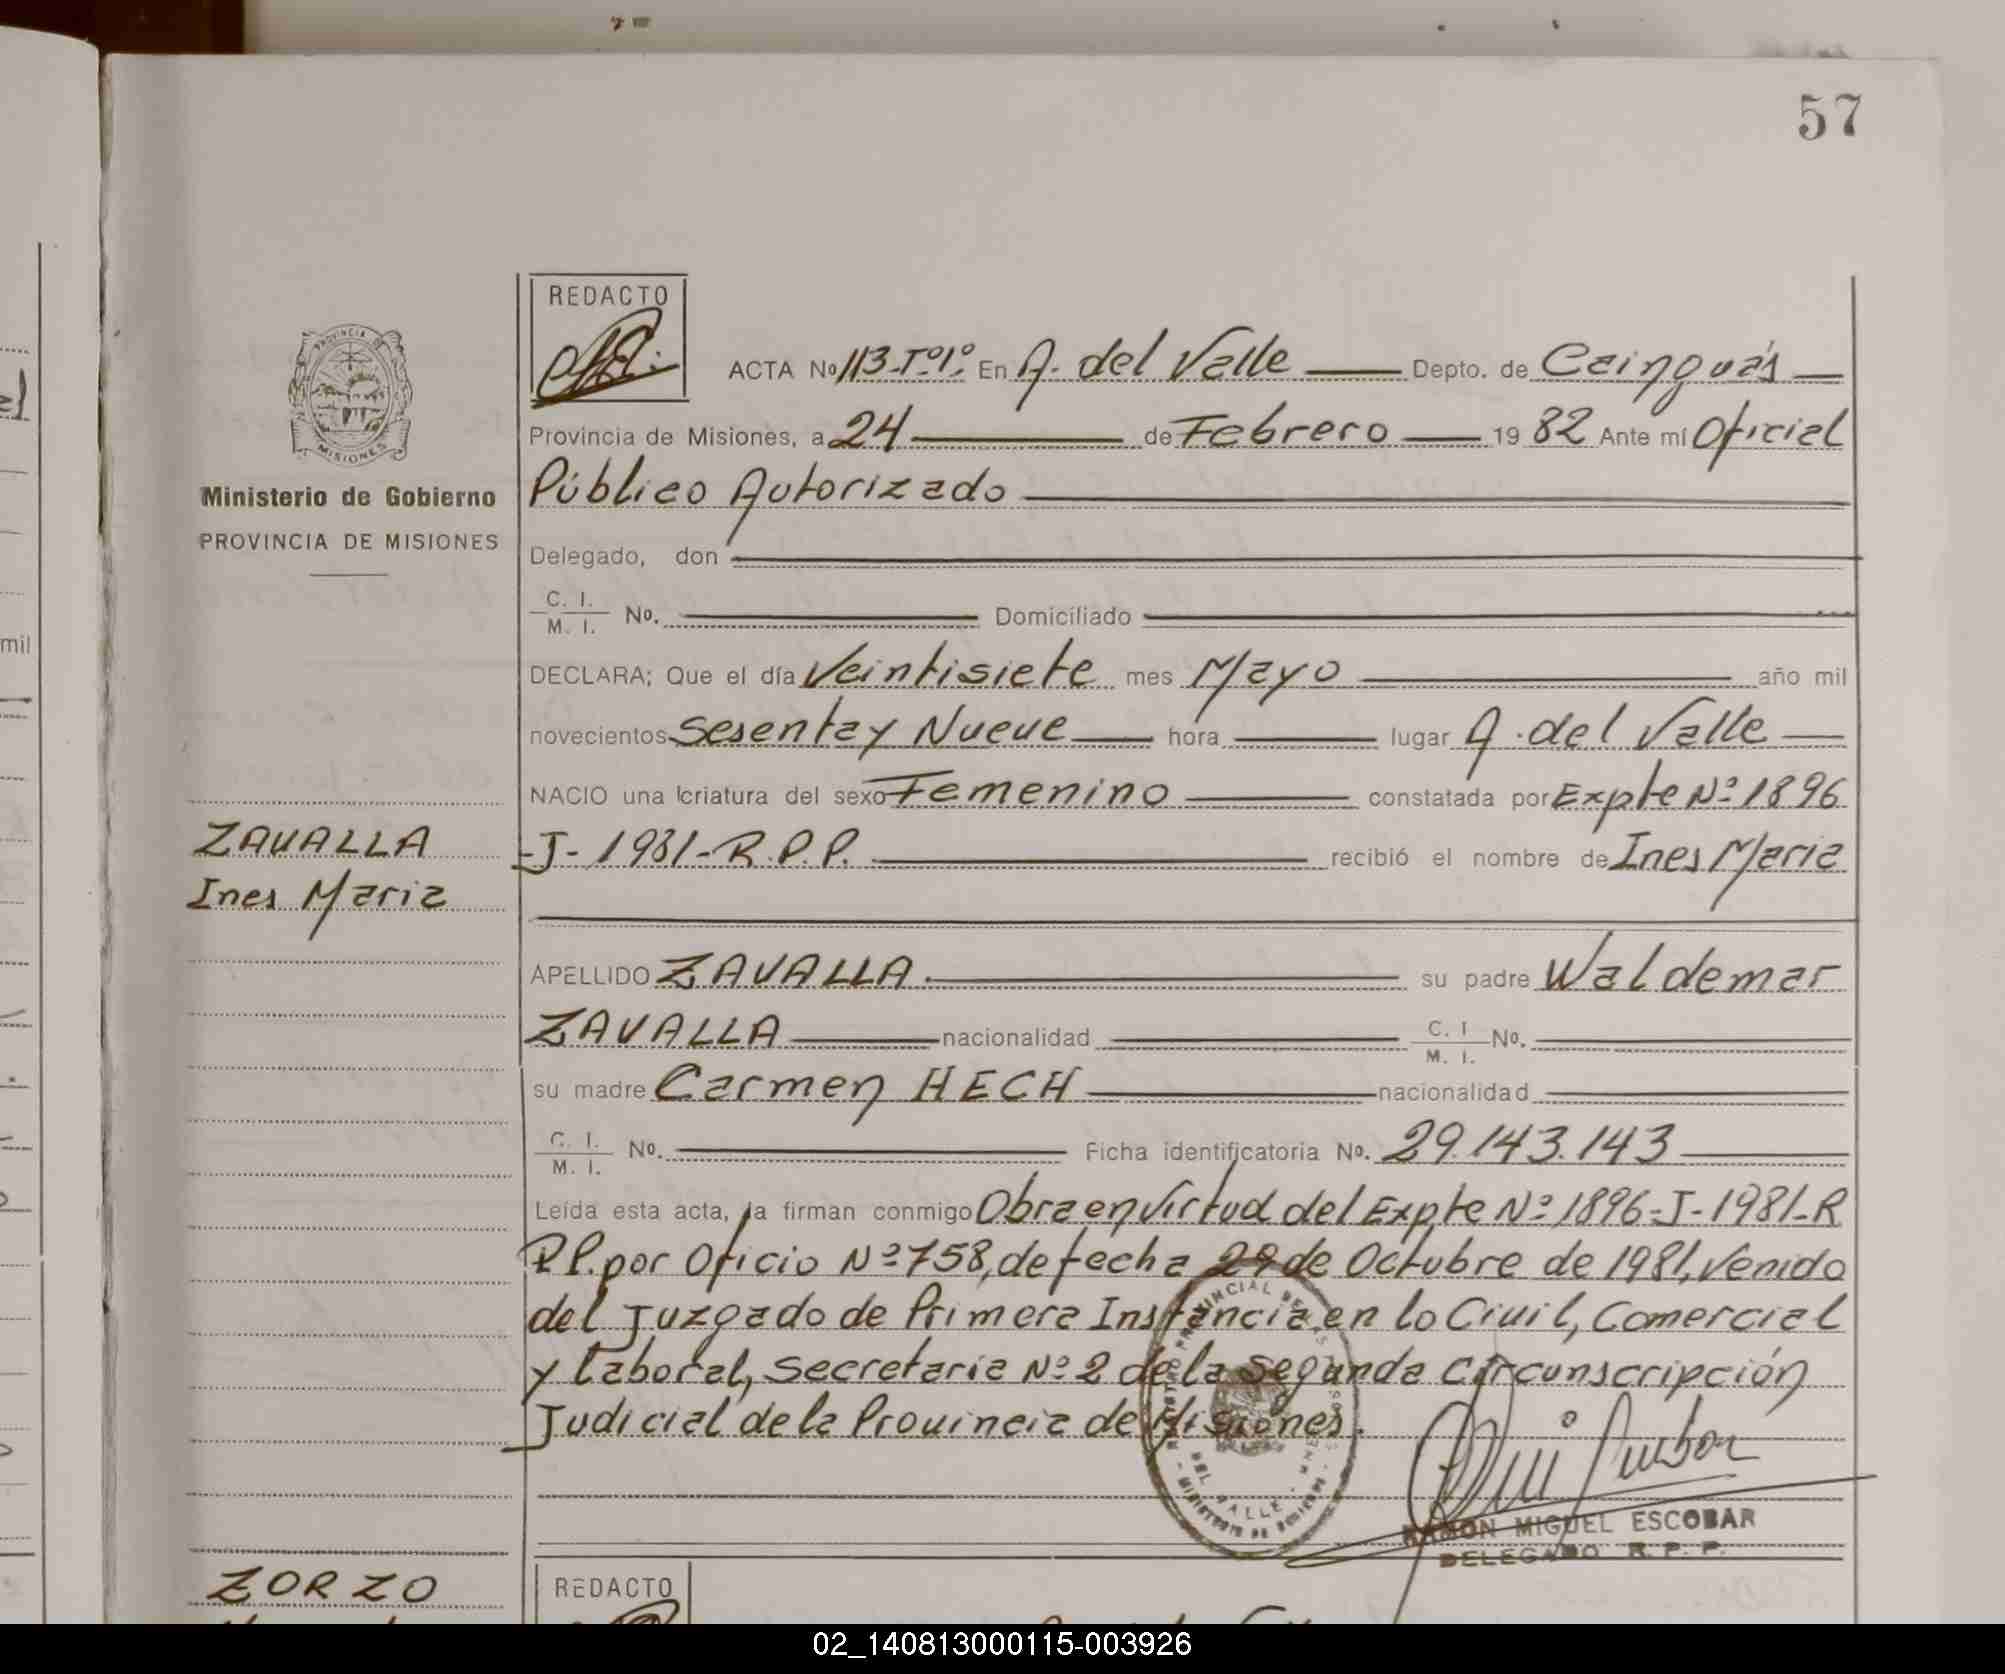 57
REDACTO
PROVINCIA DE
MISIONES
ACTA No 113-Tº1º. En A. del Valle Depto. de Cainguás
Provincia de Misiones, a 24 de Febrero 19 82 Ante mí Oficial
Ministerio de Gobierno
Público Autorizado
PROVINCIA DE MISIONES
Delegado, don
C. I.
M. I. No. Domiciliado
DECLARA; Que el día Veintisiete mes Mayo año mil
novecientos Sesenta y Nueve hora lugar A. del Valle
NACIO una criatura del sexo Femenino constatada por Expte Nº 1896
ZAVALLA
-J-1981-R.P.P. recibió el nombre de Ines Maria
Ines Maria
APELLIDO ZAVALLA. su padre Waldemar
ZAVALLA nacionalidad C. I
M. I. No.
su madre Carmen HECH nacionalidad
C. I.
M. I. No. Ficha identificatoria No. 29.143.143
Leída esta acta, la firman conmigo Obra en Virtud del Expte Nº 1896-J-1981-R
P.P. por Oficio Nº 758, de fecha 29 de Octubre de 1981, Venido
del Juzgado de Primera Instancia en lo Civil, Comercial
y Laboral, Secretaria Nº 2 de la Segunda Circunscripción
Judicial de la Provincia de Misiones.
RAMON MIGUEL ESCOBAR
DELEGADO R. P. P.
ZORZO
REDACTO
mil
02_140813000115-003926